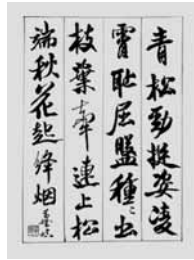 青松勁挺姿凌
霄恥屈盤種種出
枝葉牽連上松
端秋花起絳烟